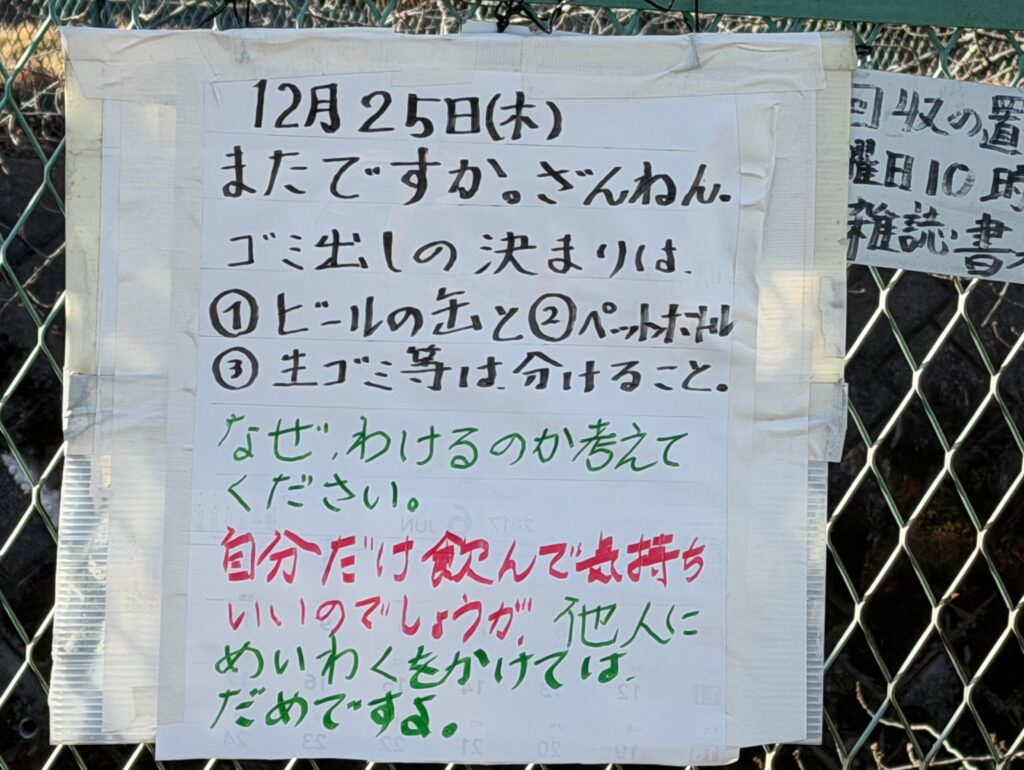 12月25日(木)
またですか。ざんねん.
ゴミ出しの決まりは.
①ビールの缶と②ペットボトル
③生ゴミ等は.分けること。
なぜ.わけるのか考えて
ください。
自分だけ飲んで気持ち
いいのでしょうが.他人に
めいわくをかけては.
だめですよ。
回収の置
曜日10時
雑誌.書
2017 6 JUN.